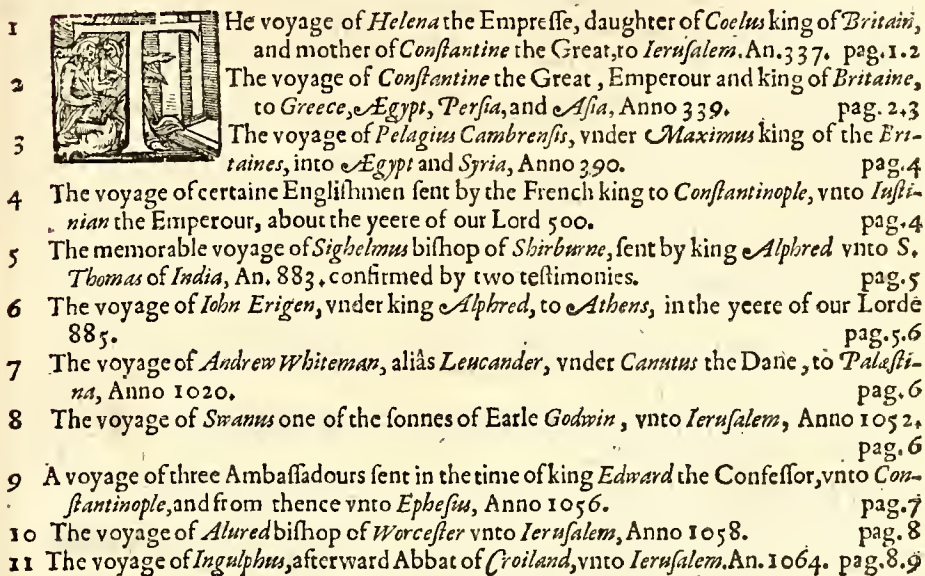 1 THe voyage of Helena the Empreſſe, daughter of Coelus king of Britain,
and mother of Conſtantine the Great,to Ieruſalem.An.337. pag.1.2
2 The voyage of Conſtantine the Great, Emperour and king of Britaine,
to Greece,Ægypt, Perſia,and Aſia, Anno 339. pag.2.3
3 The voyage of Pelagius Cambrenſis, vnder Maximus king of the Bri-
taines, into Ægypt and Syria, Anno 390. pag.4
4 The voyage of certaine Engliſhmen ſent by the French king to Conſtantinople, vnto Iuſti-
nian the Emperour, about the yeere of our Lord 500. pag.4
5 The memorable voyage of Sighelmus biſhop of Shirburne, ſent by king Alphred vnto S.
Thomas of India, An. 883. confirmed by two teſtimonies. pag.5
6 The voyage of Iohn Erigen, vnder king Alphred, to Athens, in the yeere of our Lorde
885. pag.5.6
7 The voyage of Andrew Whiteman, aliâs Leucander, vnder Canutus the Dane, to Palæſti-
na, Anno 1020. pag.6
8 The voyage of Swanus one of the ſonnes of Earle Godwin, vnto Ieruſalem, Anno 1052.
pag.6
9 A voyage of three Ambaſſadours ſent in the time of king Edward the Confeſſor,vnto Con-
ſtantinople,and from thence vnto Epheſus, Anno 1056. pag.7
10 The voyage of Alured biſhop of Worceſter vnto Ieruſalem, Anno 1058. pag.8
11 The voyage of Ingulphus,afterward Abbat of Croiland,vnto Ieruſalem.An.1064. pag.8.9